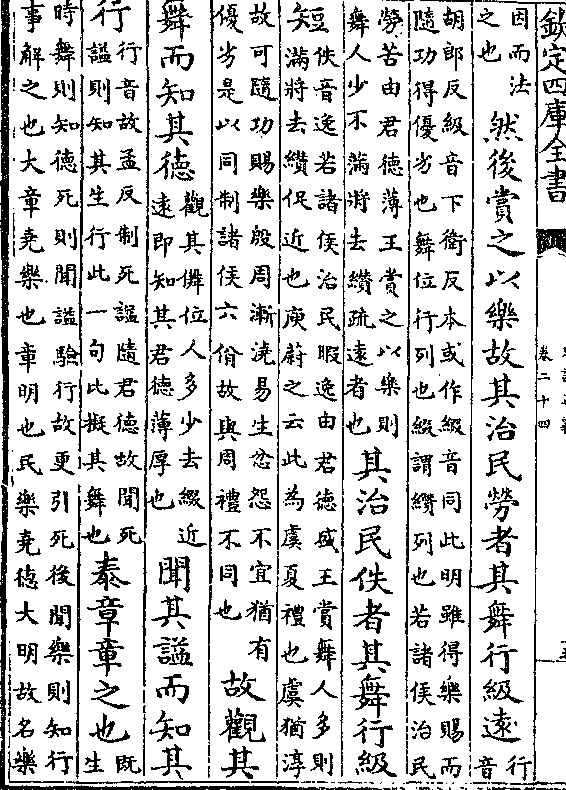 欽定四庫全書
卷二十四
因而法
之也
然後賞之以樂故其治民勞者其舞行級遠
行
音
胡郎反級音下衞反本或作綴音同此明雖得樂賜而
隨功得優劣也舞位行列也綴謂纘列也若諸侯治民
勞苦由君德薄王賞之以樂則
舞人少不滿將去纘疏遠者也
其治民佚者其舞行級
短
佚音逸若諸侯治民暇逸由君德盛王賞舞人多則
滿將去纘促近也庾蔚之云此為虞夏禮也虞猶淳
故可隨功賜樂殷周漸澆易生忿怨不宜猶有
優劣是以同制諸侯六佾故與周禮不同也
故觀其
舞而知其德
觀其儛位人多少去綴近
遠即知其君德薄厚也
聞其謚而知其
行
行音故孟反制死謚隨君德故聞死
謚則知其生行此一句比擬其舞也
泰章章之也
既
生
時舞則知德死則聞謚驗行故更引死後聞樂則知行
事解之也大章堯樂也章明也民樂堯德大明故名樂